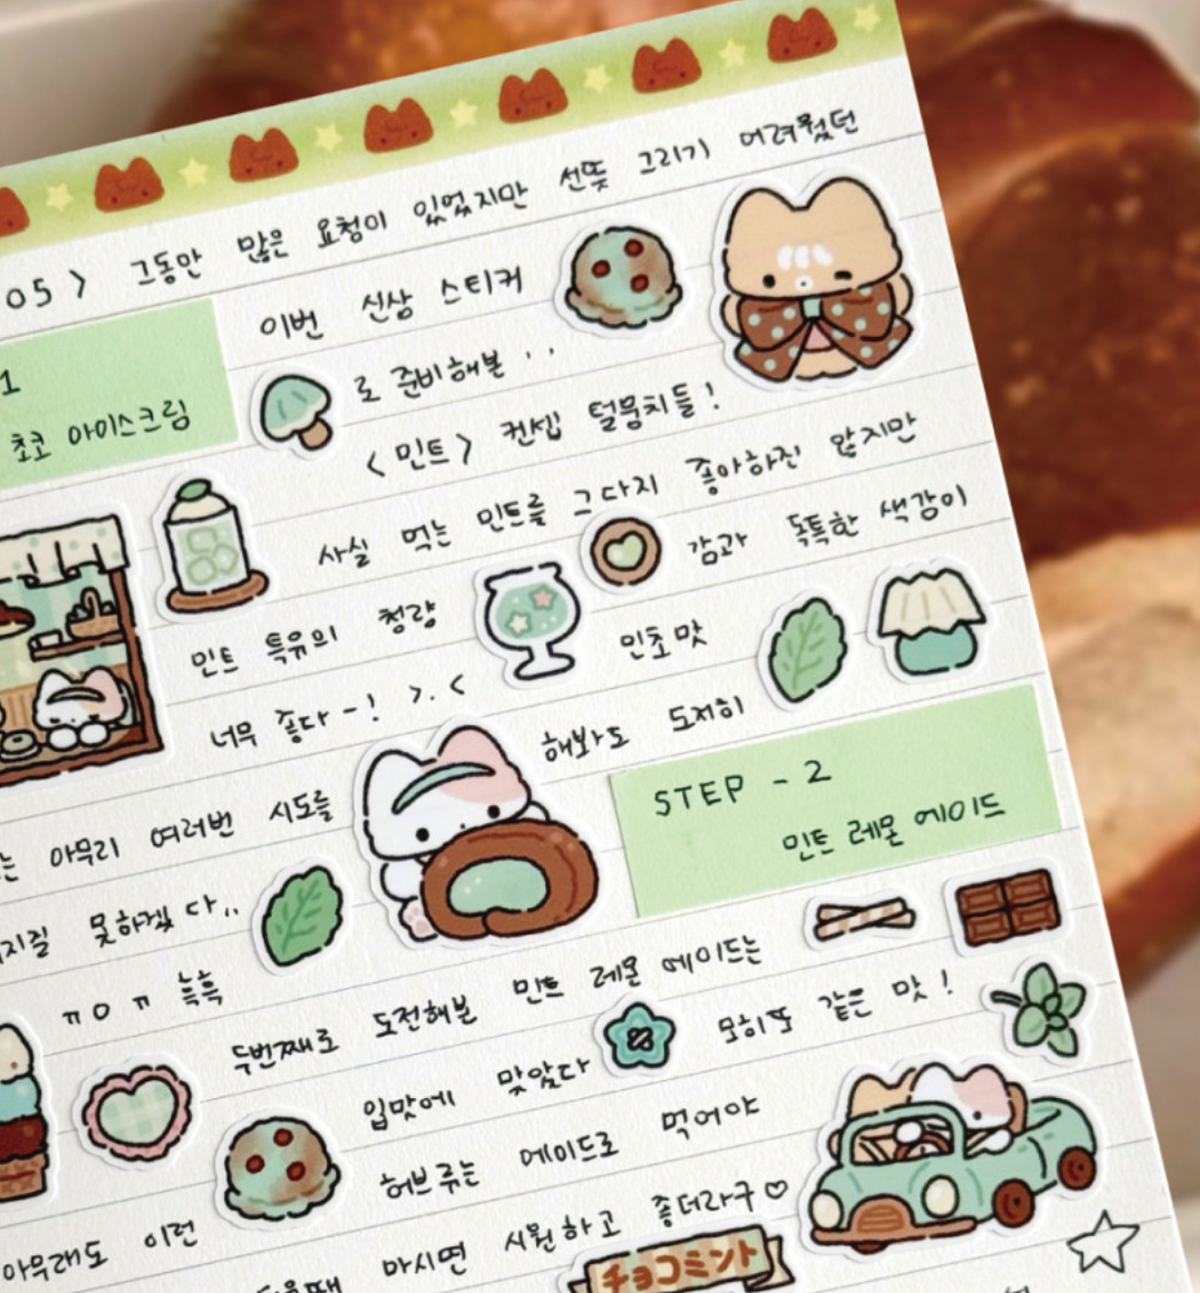 05 > 그동안 많은 요청이 있었지만 선뜻 그리기 어려웠던
이번 신상 스티커
로 준비해본 ..
<민트> 컨셉 털뭉치들!
1
초코 아이스크림
사실 먹는 민트를 그다지 좋아하진 않지만
민트 특유의 청량 감과 독특한 색감이
너무 좋다-! >.< 민초맛
는 아무리 여러번 시도를 해봐도 도저히
못하겠다..
ㅠㅇㅠ 흑흑
STEP - 2
민트 레몬 에이드
두번째로 도전해본 민트 레몬 에이드는
입맛에 맞았다 모히또 같은 맛!
아무래도 이런 허브류는 에이드로 먹어야
마시면 시원하고 좋더라구♡
チョコミント